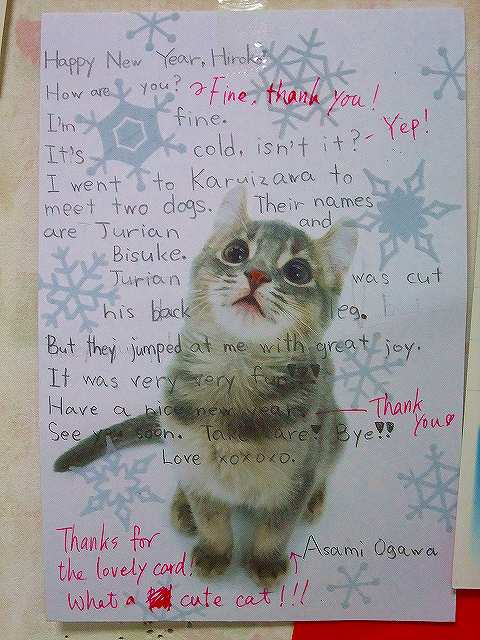 Happy New Year, Hiroko
How are you? Fine, thank you!
I'm fine.
It's cold, isn't it? - Yep!
I went to Karuizawa to
meet two dogs. Their names
are Jurian and
Bisuke.
Jurian was cut
his back leg.
But they jumped at me with great joy.
It was very very fun!!!
Have a nice new years Thank
See you soon. Take care! Bye!! you♥
Love xoxoxo.
Asami Ogawa
Thanks for
the lovely card!
What a cute cat!!!